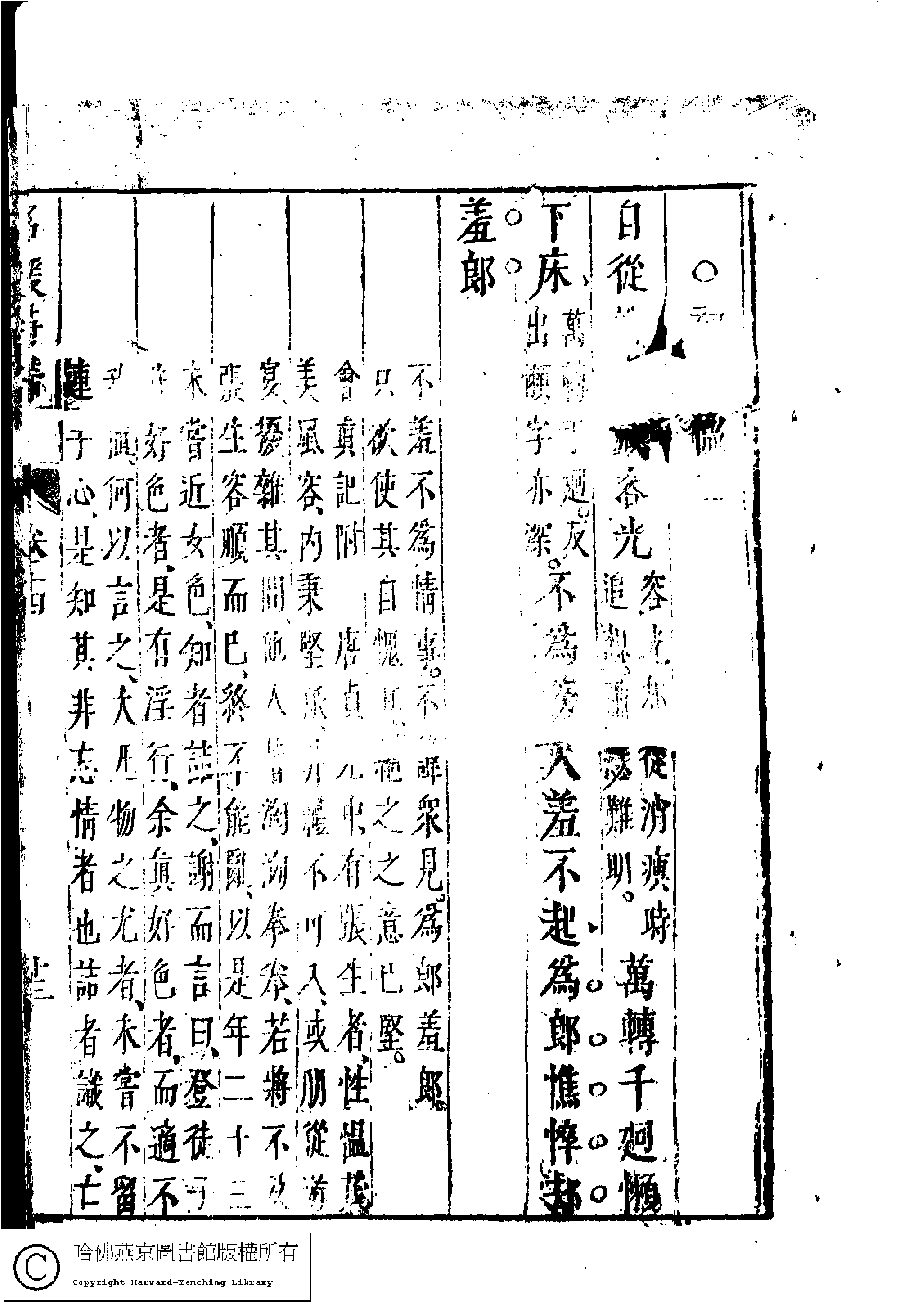 自從 容光 容光 從消瘦時 追 難明。 萬轉千廻懶
下床 萬轉千廻。反出懶字亦深。 不爲旁人羞不起爲郎憔悴却
羞郎
不羞不爲情事。不 衆見。爲郎羞郎。
只欲使其自愧 絶之之意已堅。
會真記附 唐貞元中有張生者、性溫茂
美風容、内秉堅孤、非禮不可入、或朋從遊
宴、擾雜其間、他人皆洶洶拳拳、若將不及
張生容順而已、終不能亂、以是年二十三
未嘗近女色、知者詰之、謝而言曰、登徒子
非好色者、是有浮行、余真好色者、而適不
我 何以言之、大凡物之尤者、未嘗不留
連于心、是知其非忘情者也詰者識之、亡
名媛詩歸 卷十四 廿三
哈佛燕京圖書館版權所有
Copyright Harvard-Yenching Library